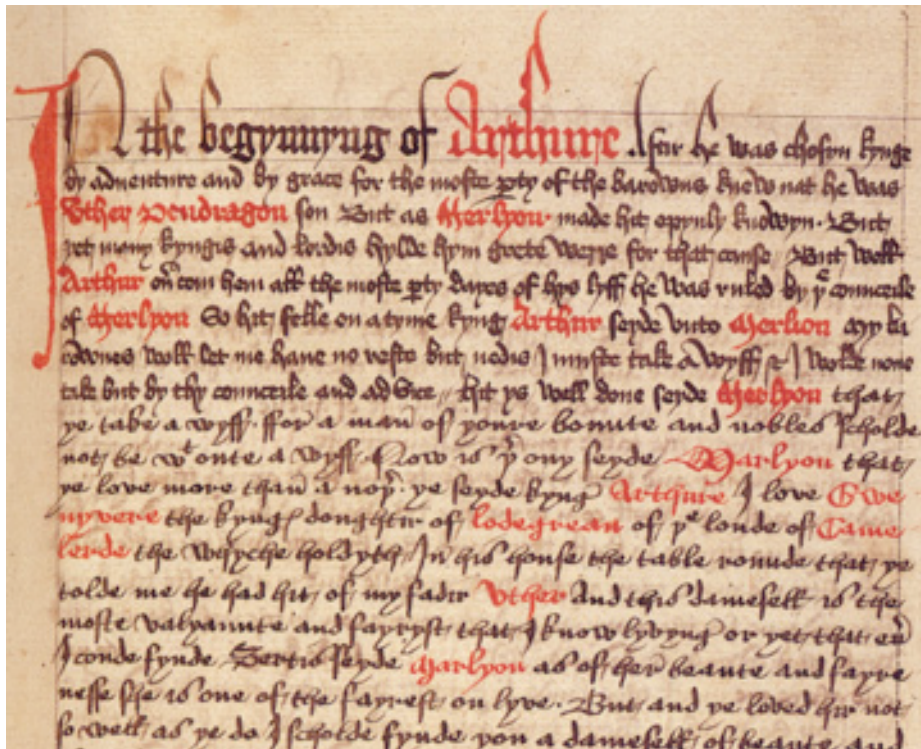 In the begynnyng of Arthure Aftir he was chosyn kynge
by adventure and by grace for the moste pty of the barowns knew nat he was
Uther Pendragon son But as Merlyon made hit opynly knowyn. But
yet mony kyngis and lordis hylde hym grete werre for that cause But well
Arthur ou com hem all the moste pty dayes of hys lyff he was ruled by ye counceile
of Merlyon So hit felle on a tyme kyng Arthur seyde unto Merlion My ba
rownes woll let me have no reste but nedis I muste take a wyff & I wolde none
take but by thy counceile and advice hit ys well done seyde Merlyon that
ye take a wyff. ffor a man of youre bounte and nobles scholde
not be wt oute a wyff. Now is yr ony seyde Marlyon that
ye love more than a noyr. ye seyde kyng Arthure I love Gwe
nyvere the kynges doughtir of lodegrean of ye londe of Came
lerde the whyche holdyth In his house the table rounde that ye
tolde me he had hit of my fadir Uther And this damesell is the
moste valyaunte and fayryst that I know lyvyng or yet that eu
I coude fynde Sertis seyde Marlyon as of her beaute and fayre
nesse she is one of the fayrest on lyve. But and ye loved hir not
so well as ye do I scholde fynde you a damesell of beaute and